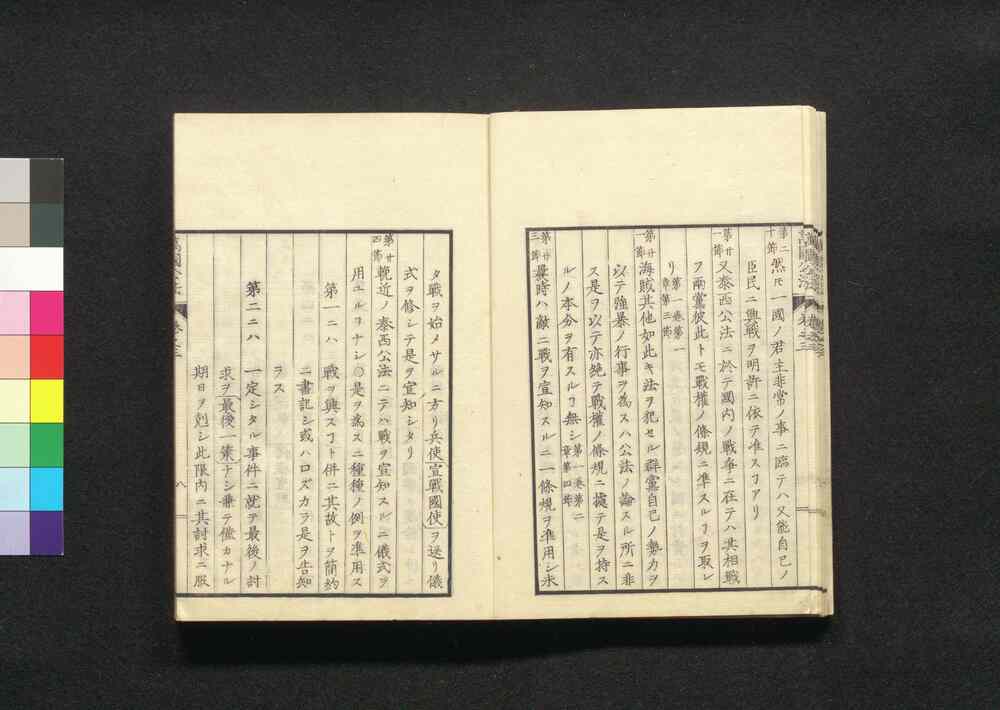 第二十節 然𪜈一國ノ君主非常ノ事ニ臨テハ又能自己ノ
臣民ニ興戰ヲ明許ニ依テ准スヿアリ
第廿一節 又泰西公法ニ於テ國内ノ戰爭ニ在テハ其相戰
フ兩黨彼此トモ戰權ノ條規ニ準スルヿヲ取レ
リ 第一卷第一章第三節
第廿一節 海賊其他如此キ法ヲ犯セル群黨自己ノ勢力ヲ
以テ強暴ノ行事ヲ爲スハ公法ノ論スル所ニ非
ス是ヲ以テ亦絶テ戰權ノ條規ニ據テ是ヲ待ス
ルノ本分ヲ有スルヿ無シ 第一卷第二章第四節
第廿三節 曩時ハ敵ニ戰ヲ宣知スルニ一條規ヲ準用シ未
タ戰ヲ始メサルニ方リ兵使宣戰國使ヲ送リ儀
式ヲ修シテ是ヲ宣知シタリ
第廿四節 輓近ノ泰西公法ニテハ戰ヲ宣知スルニ儀式ヲ
用ユルヿナシ○是ヲ爲スニ種種ノ例ヲ準用ス
第一ニハ 戰ヲ興スヿト併ニ其故トヲ簡約
ニ書記シ或ハロズカラ是ヲ告知
ヲス
第二ニハ 一定シタル事件ニ就テ最後ノ討
求ヲ最後一策ナシ兼テ僅カナル
期日ヲ剋シ此限内ニ其討求ニ服
萬國公法
卷之三
八